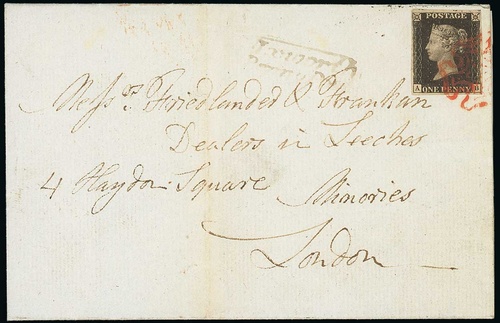 POSTAGE
ONE PENNY
Messrs Friedlanded & Frankan
Dealers in Leeches
4 Haydon Square Minories
London